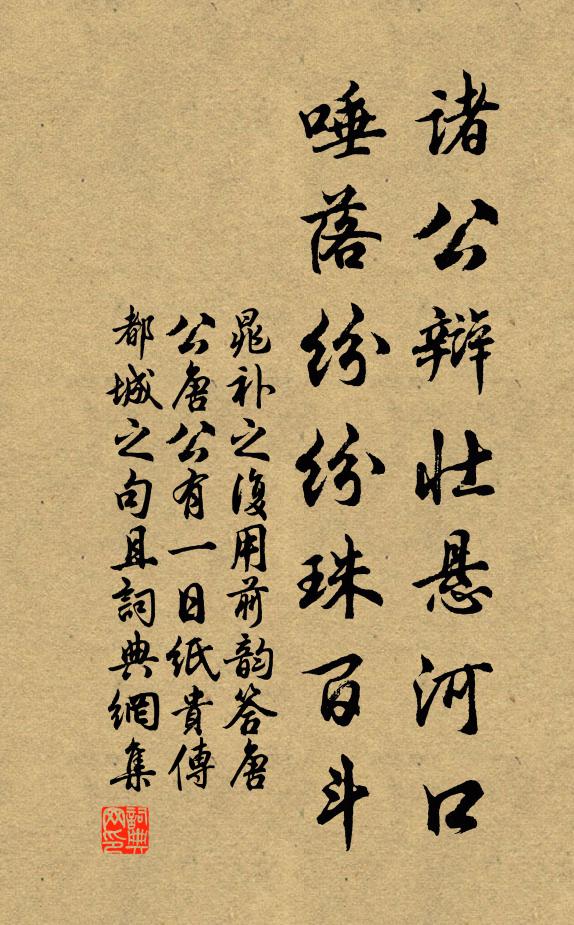 诸公辩壮悬河口
唾落纷纷珠百斗
晁补之復用前韵答唐
公唐公有一日纸貴傳
都城之句且詞典網集
詞典網印